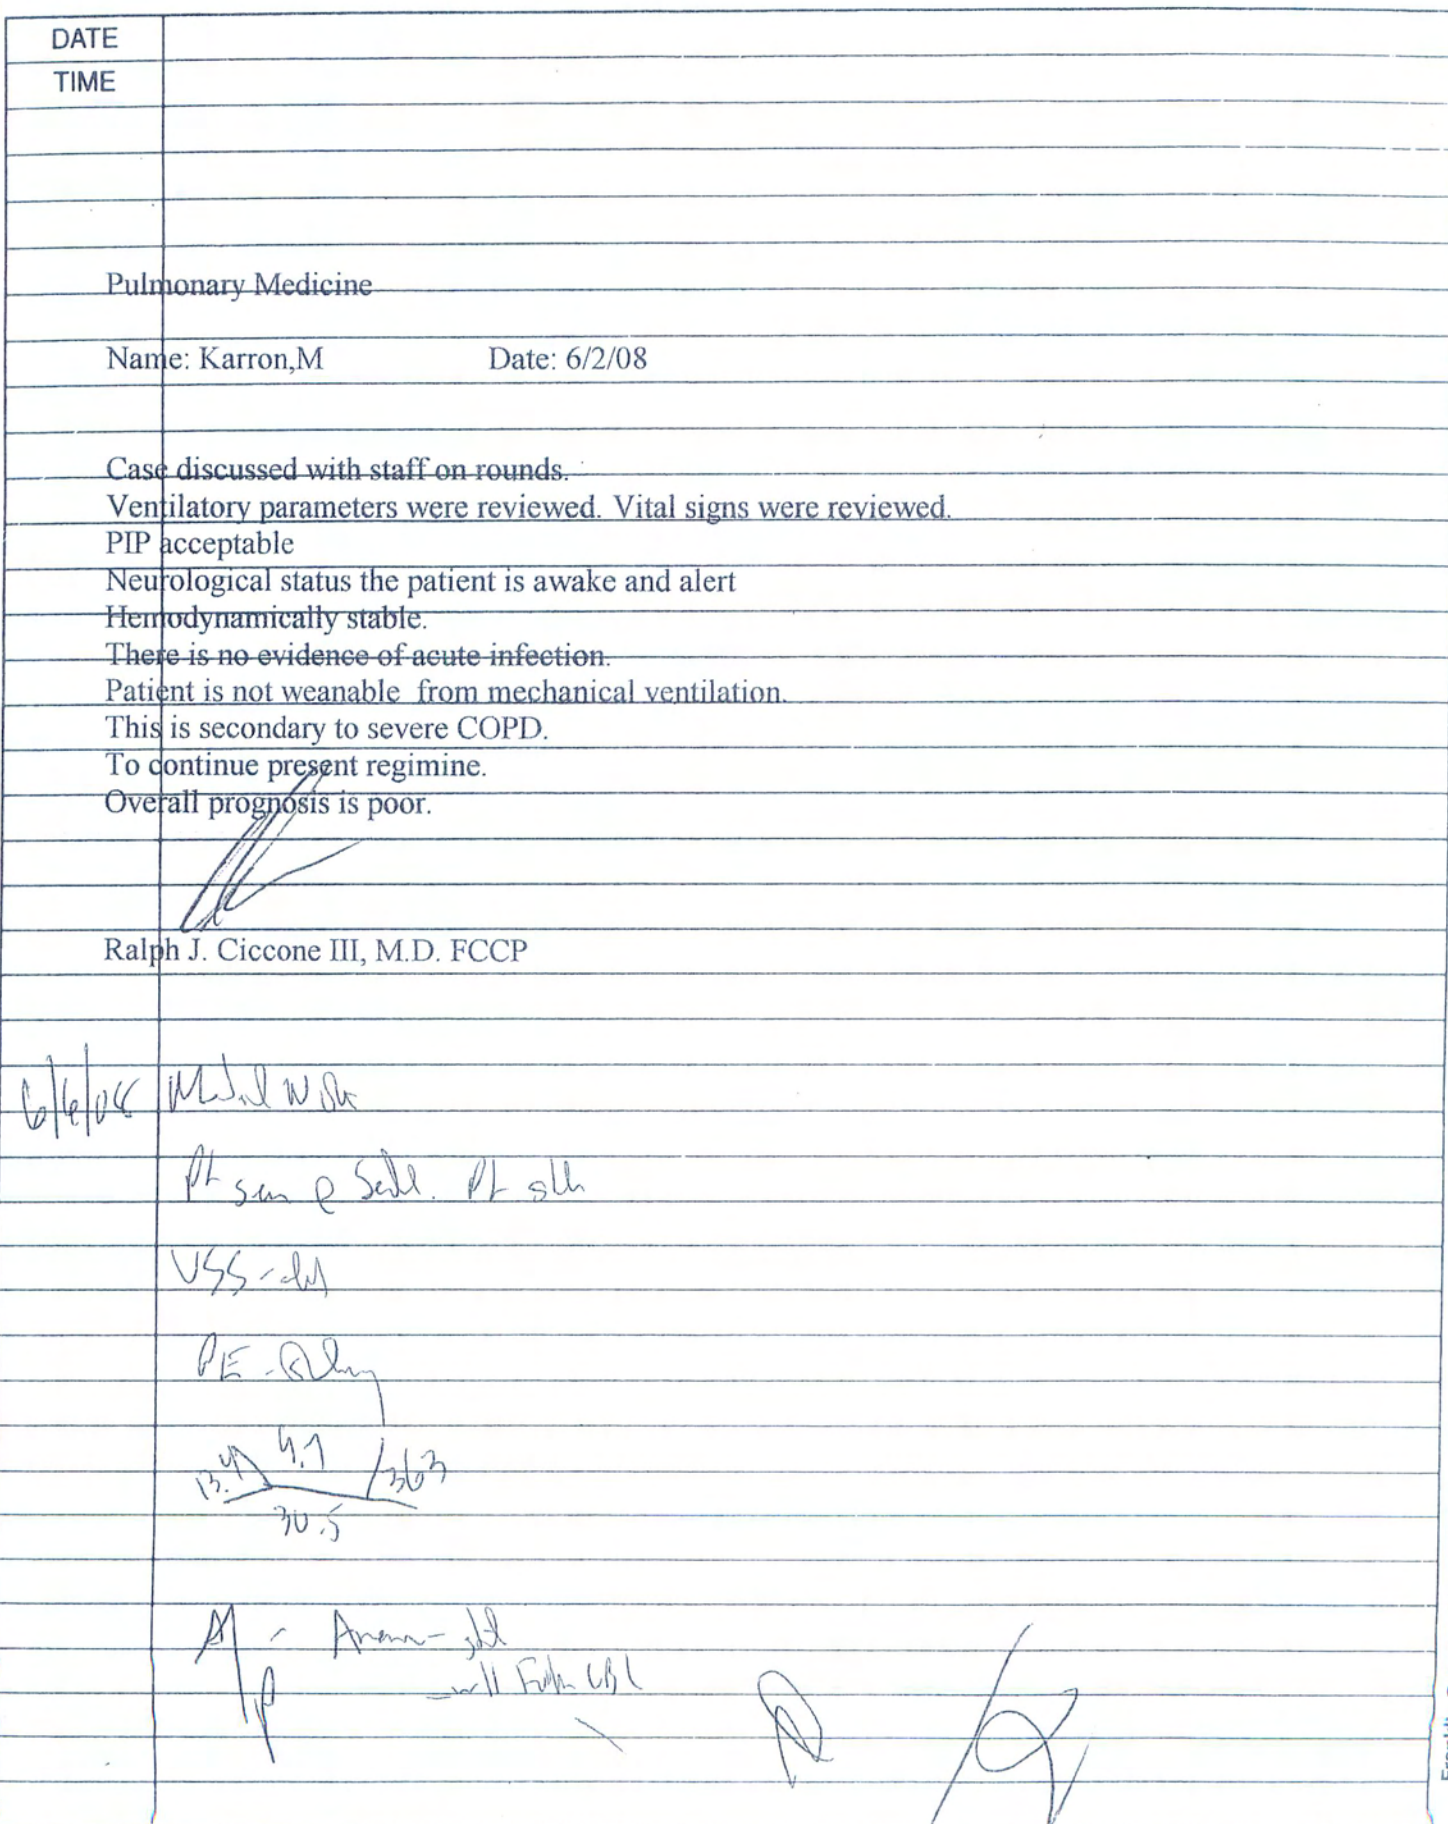 DATE
TIME
Pulmonary Medicine
Name: Karron,M Date: 6/2/08
Case discussed with staff on rounds.
Ventilatory parameters were reviewed. Vital signs were reviewed.
PIP acceptable
Neurological status the patient is awake and alert
Hemodynamically stable.
There is no evidence of acute infection.
Patient is not weanable from mechanical ventilation.
This is secondary to severe COPD.
To continue present regimine.
Overall prognosis is poor.
Ralph J. Ciccone III, M.D. FCCP
Pt Pt
VSS
PE
13.4 9.1 363
30.5
A/P -